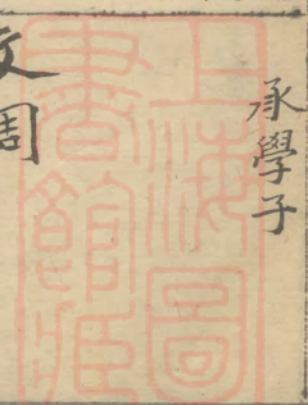 承學子
上海圖
書館藏
周